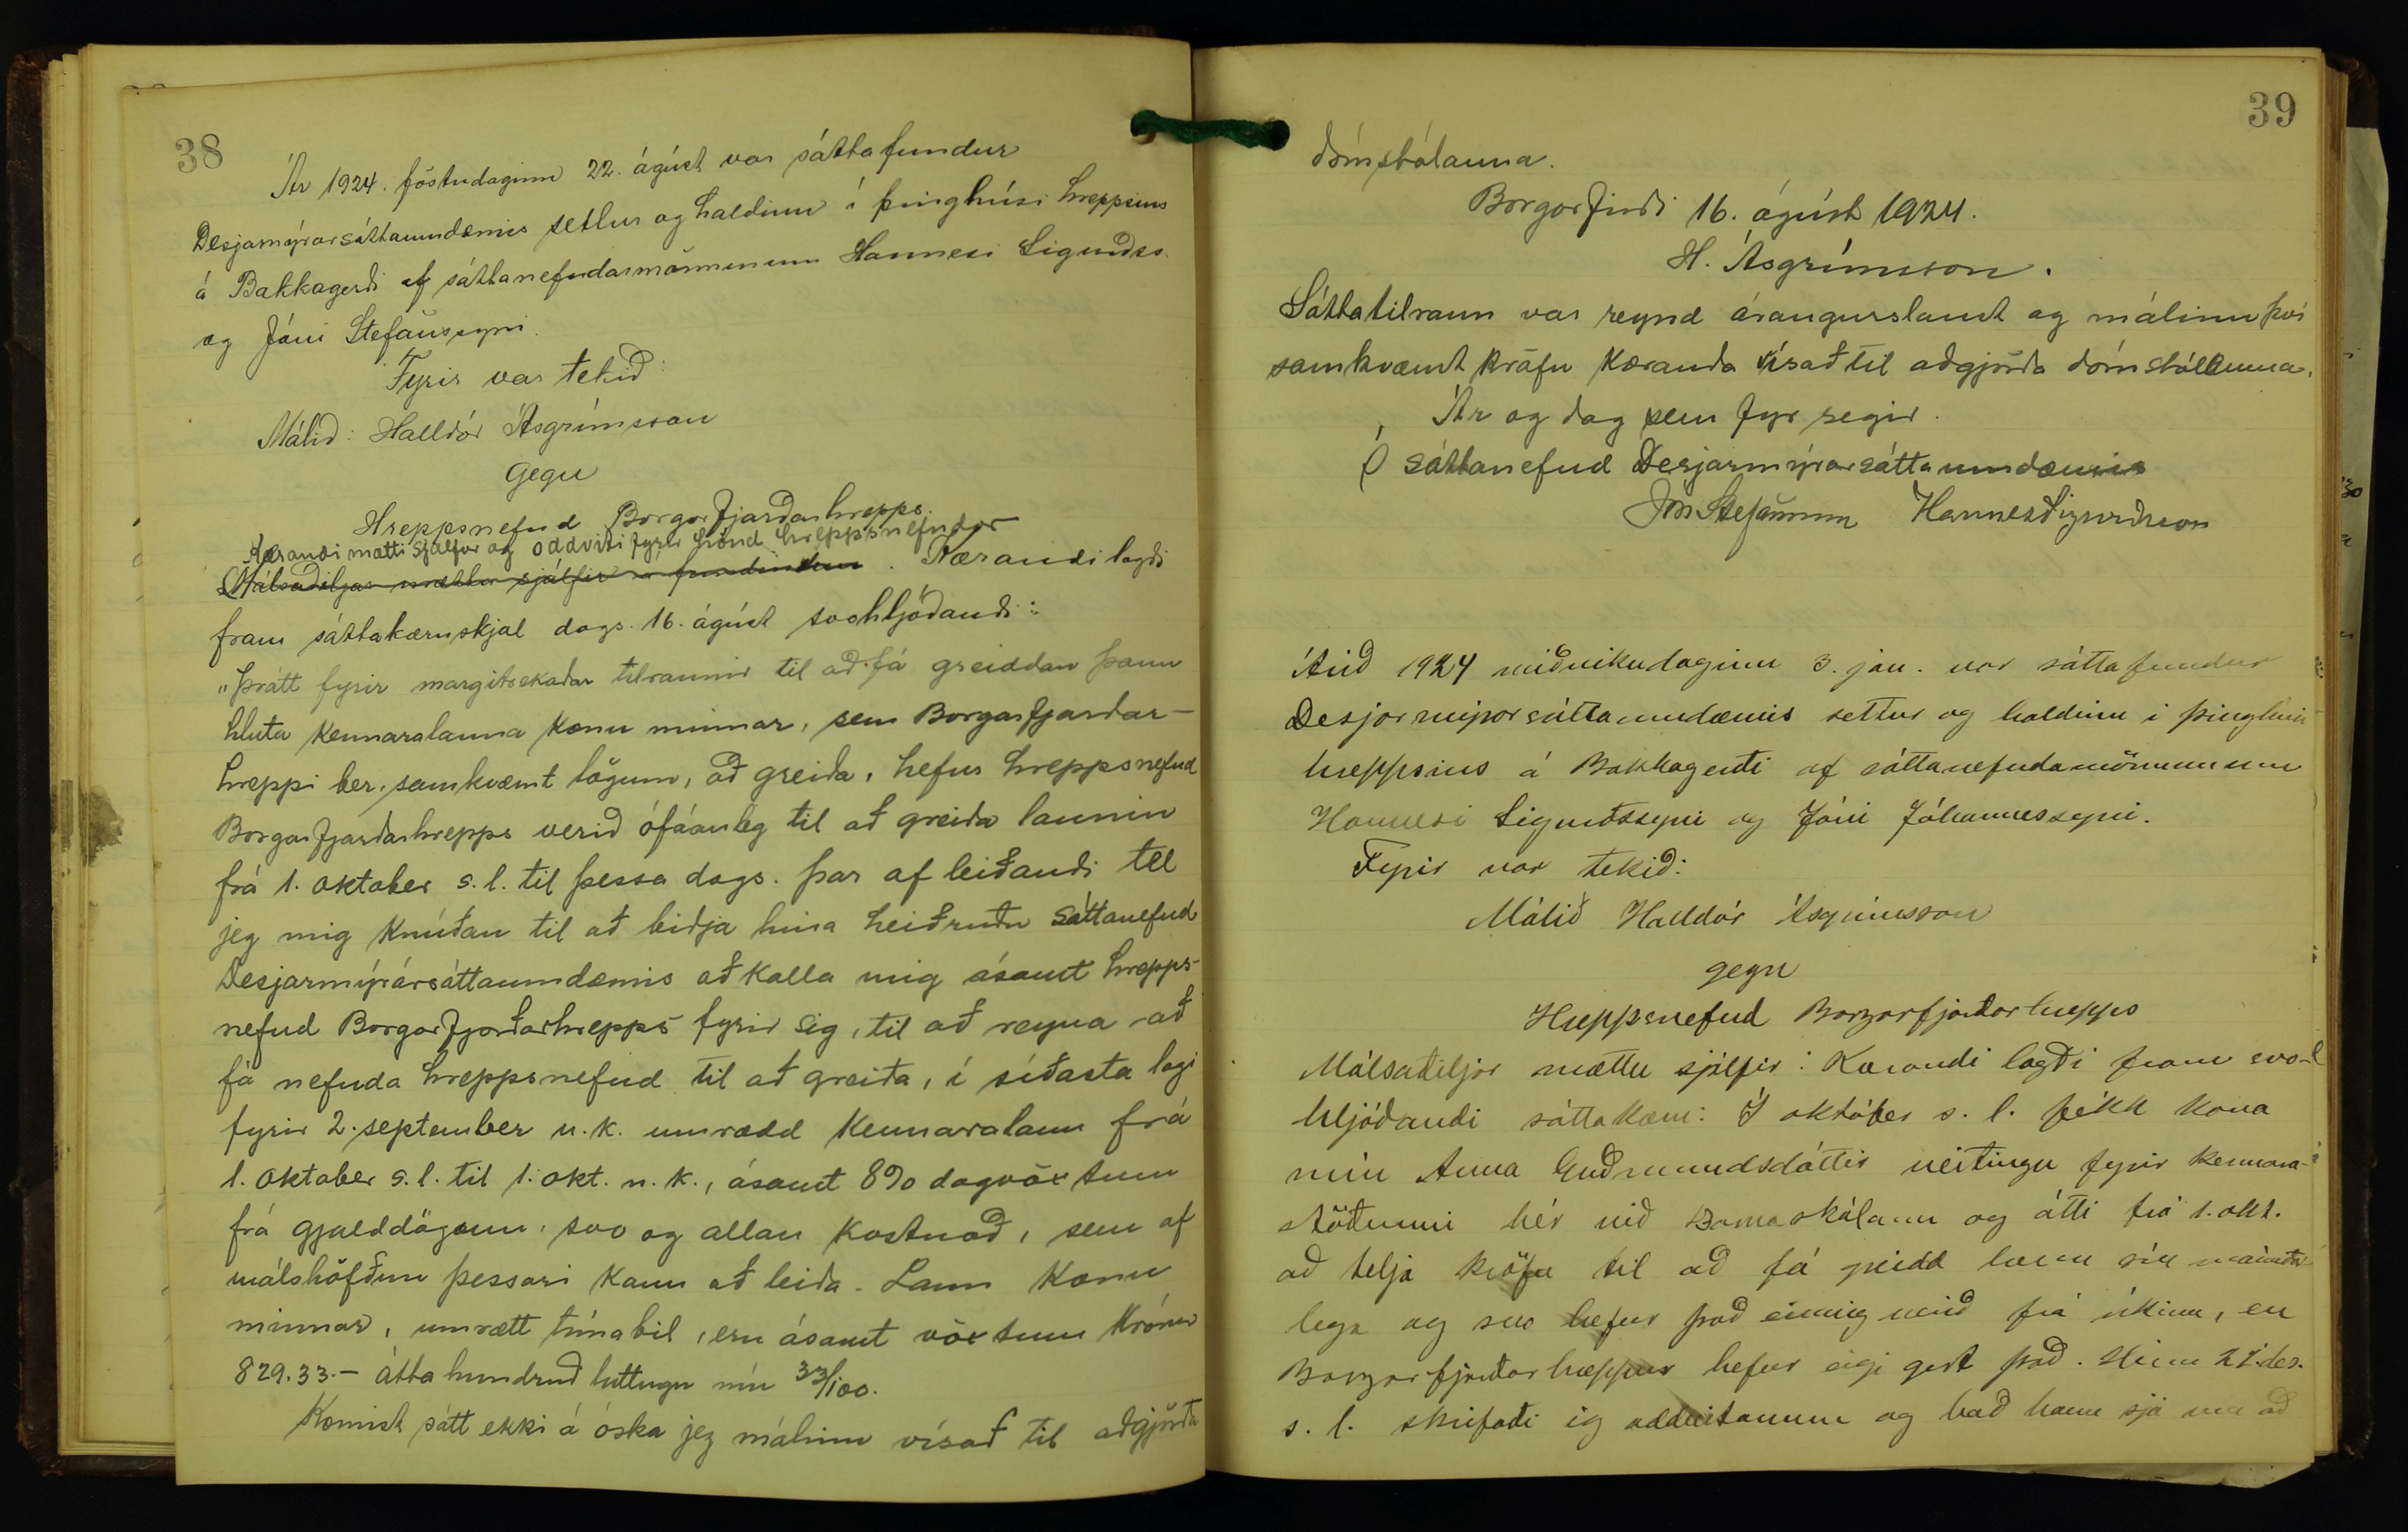 38
Ár 1924. föstudaginn 22. ágúst var sáttafundur
Desjamýrarsáttaumdæmis settur og haldinn í þinghúsi hreppsins
á Bakkagerði af sáttanefndarmönnunum Hannesi Sigurðss.
og Jóni Stefánssyni.
Fyrir var tekið:
Málið: Halldór Ásgrímsson
gegn
Hreppsnefnd Borgarfjarðarhrepps.
Kærandi mætti sjálfur og oddviti fyrir hönd hreppsnefndar
Málsaðiljar mættu sjálfir á fundinum. Kærandi lagði
fram sáttakæruskjal dags. 16. ágúst svohljóðandi:
„Þrátt fyrir margítrekaðar tilraunir til að fá greiddan þann
hluta kennaralauna konu minnar, sem Borgarfjarðar-
hreppi ber, samkvæmt lögum, að greiða, hefur hreppsnefnd
Borgarfjarðarhrepps verið ófáanleg til að greiða launin
frá 1. oktober s.l. til þessa dags. Þar af leiðandi tel
jeg mig knúðan til að biðja hina heiðruðu sáttanefnd
Desjarmýrársáttaumdæmis að kalla mig ásamt hrepps-
nefnd Borgarfjarðarhrepps fyrir sig, til að reyna að
fá nefnda hreppsnefnd til að greiða, í síðasta lagi
fyrir 2. september n.k. umrædd kennaralaun frá
1. oktober s.l. til 1. okt. n.k., ásamt 8% dagvöxtum
frá gjalddögum, svo og allan kostnað, sem af
málshöfðun þessari kann að leiða. Laun konu
minnar, umrætt tímabil, eru ásamt vöxtum krónur
829.33.- átta hundruð tuttugu níu 33/100.
Komist sátt ekki á óska jeg málinu vísað til aðgjörða
39
dómstólanna.
Borgarfirði 16. ágúst 1924.
H. Ásgrímsson.
Sáttatilraun var reynd árangurslaust og málinu því
samkvæmt kröfu kæranda vísað til aðgjörða dómstólanna.
Ár og dag sem fyr segir.
Í sáttanefnd Desjarmýrarsáttaumdæmis
Jón Stefánsson Hannes Sigurðsson
Árið 1924 miðvikudaginn 3. jan. var sáttafundur
Desjarmýrarsáttaumdæmis settur og haldinn í þinghúsi
hreppsins á Bakkagerði af sáttanefndamönnunum
Hannesi Sigurðssyni og Jóni Jóhannessyni.
Fyrir var tekið:
Málið Halldór Ásgrímsson
gegn
Hreppsnefnd Borgarfjarðarhrepps
Málsaðiljar mættu sjálfir: Kærandi lagði fram svo-
hljóðandi sáttakæru: Í október s.l. fékk kona
mín Anna Guðmundsdóttir veitingu fyrir kennara-
stöðunni hér við barnaskólann og átti frá 1. okt.
að telja kröfu til að fá greidd laun sín mánaða
lega og svo hefur það einnig verið frá ríkinu, en
Borgarfjarðarhreppur hefur eigi gert það. Hinn 27. des.
s.l. skrifaði ég oddvitanum og bað hann sjá um að